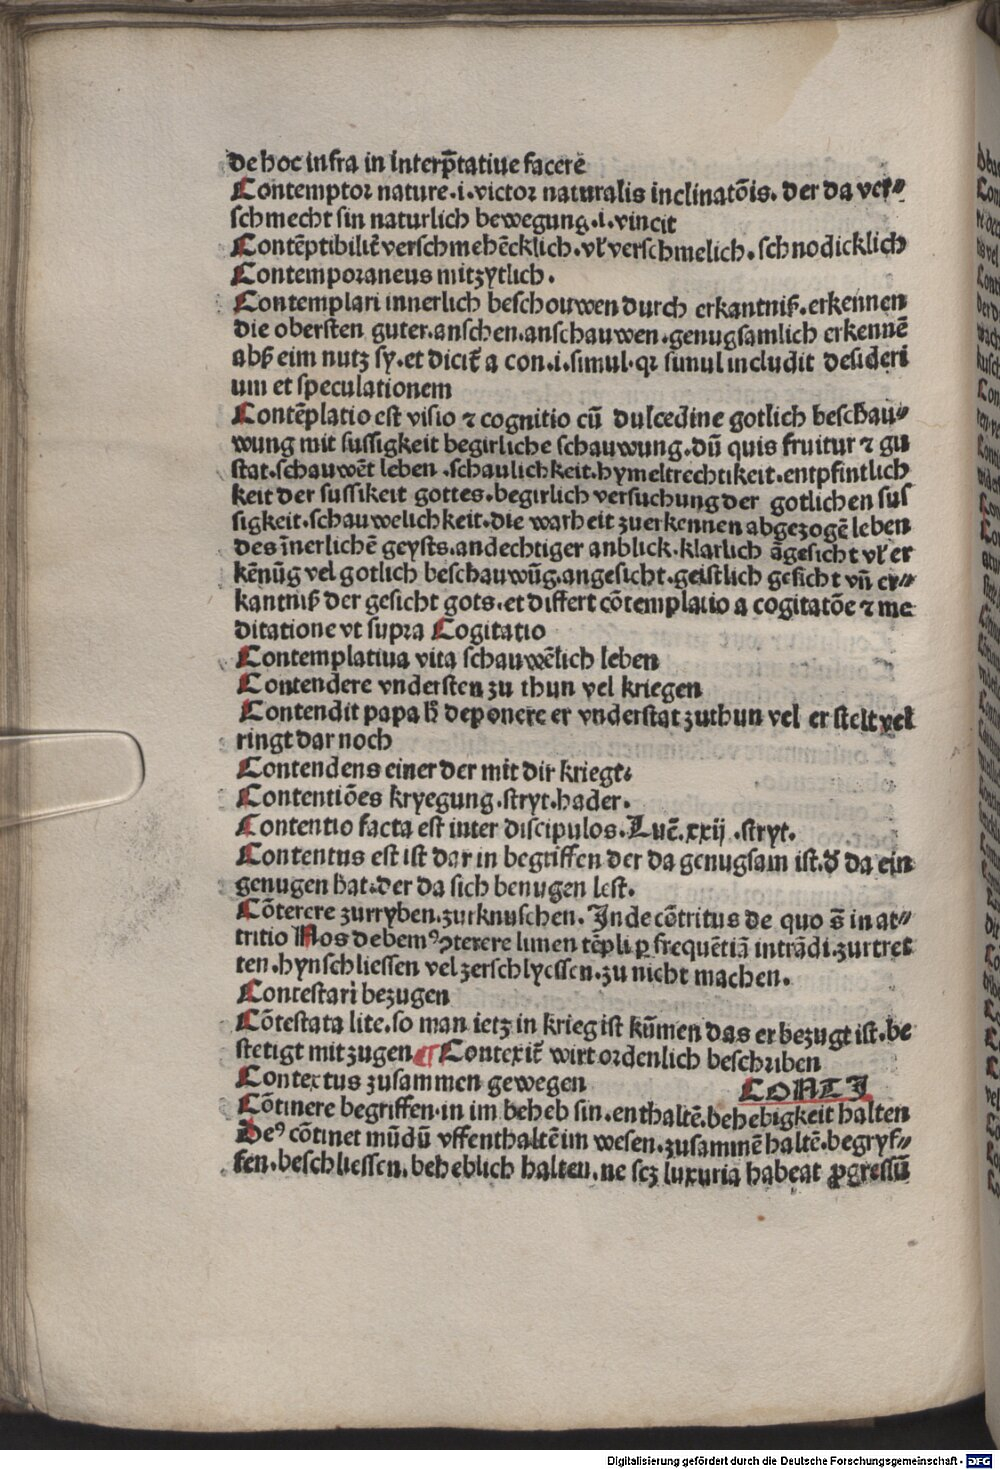 de hoc infra in interp̄tatiue facere
Contemptor nature.i.victor naturalis inclinatōis. der da ver⸗
schmecht sin naturlich bewegung.i.vincit
Contēptibilit̄ verschmehēcklich.vľ verschmelich.schnodicklich
Contemporaneus mitzytlich.
Contemplari innerlich beschouwen durch erkantniß.erkennen
die obersten guter.anschen.anschauwen.genugsamlich erkennē
abß eim nutz sy.et dicit̄ a con.i.simul.qꝛ simul includit desideri
um et speculationem
Contēplatio est visio ⁊ cognitio cū dulcedine gotlich beschau⸗
wung mit sussigkeit begirliche schauwung.dū quis fruitur ⁊ gu
stat.schauwēt leben.schaulichkeit.hymeltrechtikeit.entpfintlich
keit der sussikeit gottes.begirlich versuchung der gotlichen sus
sigkeit.schauwelichkeit.die warheit zuerkennen abgezogē leben
des īnerlichē geysts.andechtiger anblick.klarlich āgesicht vľ er
kēnūg vel gotlich beschauwūg.angesicht.geistlich gesicht vn̄ er⸗
kantniß der gesicht gots.et differt cōtemplatio a cogitatōe ⁊ me
ditatione vt supra Cogitatio
Contemplatiua vita schauwēlich leben
Contendere vndersten zu thun vel kriegen
Contendit papa h̄ deponere er vnderstat zuthun vel er stelt vel
ringt dar noch
Contendens einer der mit dir kriegt.
Contentiōes kryegung.stryt.hader.
Contentio facta est inter discipulos.Luē.xxij.stryt.
Contentus est ist dar in begriffen der da genugsam ist.d̄ da ein
genugen hat.der da sich benugen lest.
Cōterere zurryben.zurknuschen. Inde cōtritus de quo s̄ in at⸗
tritio Nos debemꝰ ꝯterere limen tēpli ꝑ frequētiā intrādi.zurtret
ten.hynschliessen vel zerschlyessen.zu nicht machen.
Contestari bezugen
Cōtestata lite.so man ietz in krieg ist kūmen das er bezugt ist.be
stetigt mit zugen ¶ Contexit̄ wirt ordenlich beschriben
Contextus zusammen gewegen
CONTI
Cōtinere begriffen.in im beheb sin.enthaltē.behebigkeit halten
Deꝰ cōtinet mūdū vffenthaltē im wesen.zusammē haltē.begryf⸗
fen.beschliessen.beheblich halten.ne sez luxuria habeat ꝓgressū
Digitalisierung gefördert durch die Deutsche Forschungsgemeinschaft - DFG